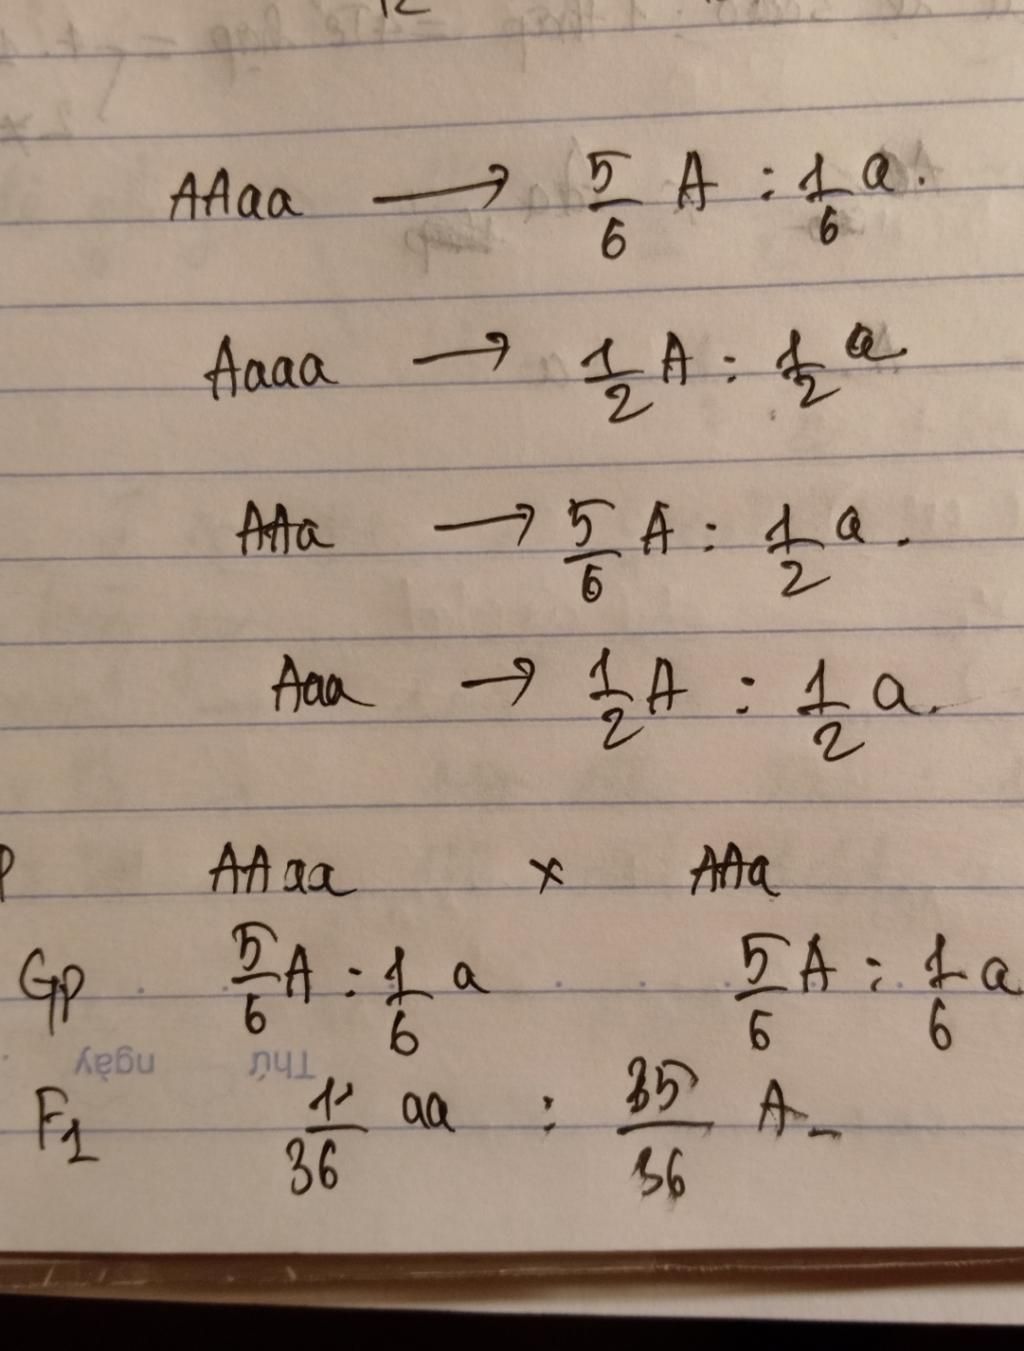 12
AAaa → 5/6 A : 1/6 a.
Aaaa → 1/2 A : 1/2 a.
AAa → 5/6 A : 1/2 a.
Aaa → 1/2 A : 1/2 a.
P AAaa × AAa
Gp 5/6 A : 1/6 a 5/6 A : 1/6 a
Thứ ngày
F1 1/36 aa : 35/36 A_